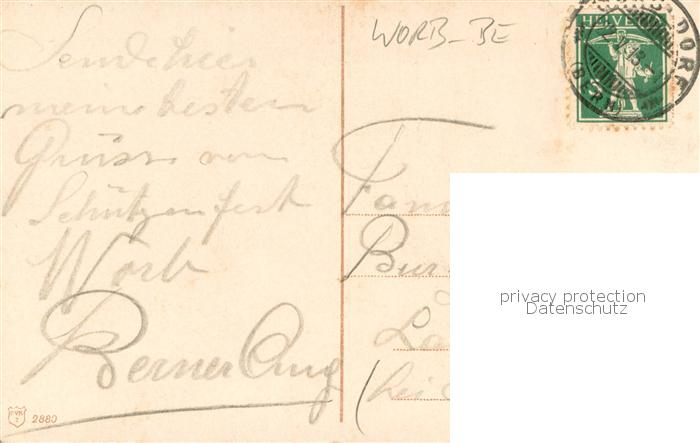 Sende hier
meine besten
Grüsse vom
Schützenfest
Worb
Berner Aug
2880
WORB-BE
HELVETIA
5
(BERN)
Fam
Bur
La
privacy protection
Datenschutz